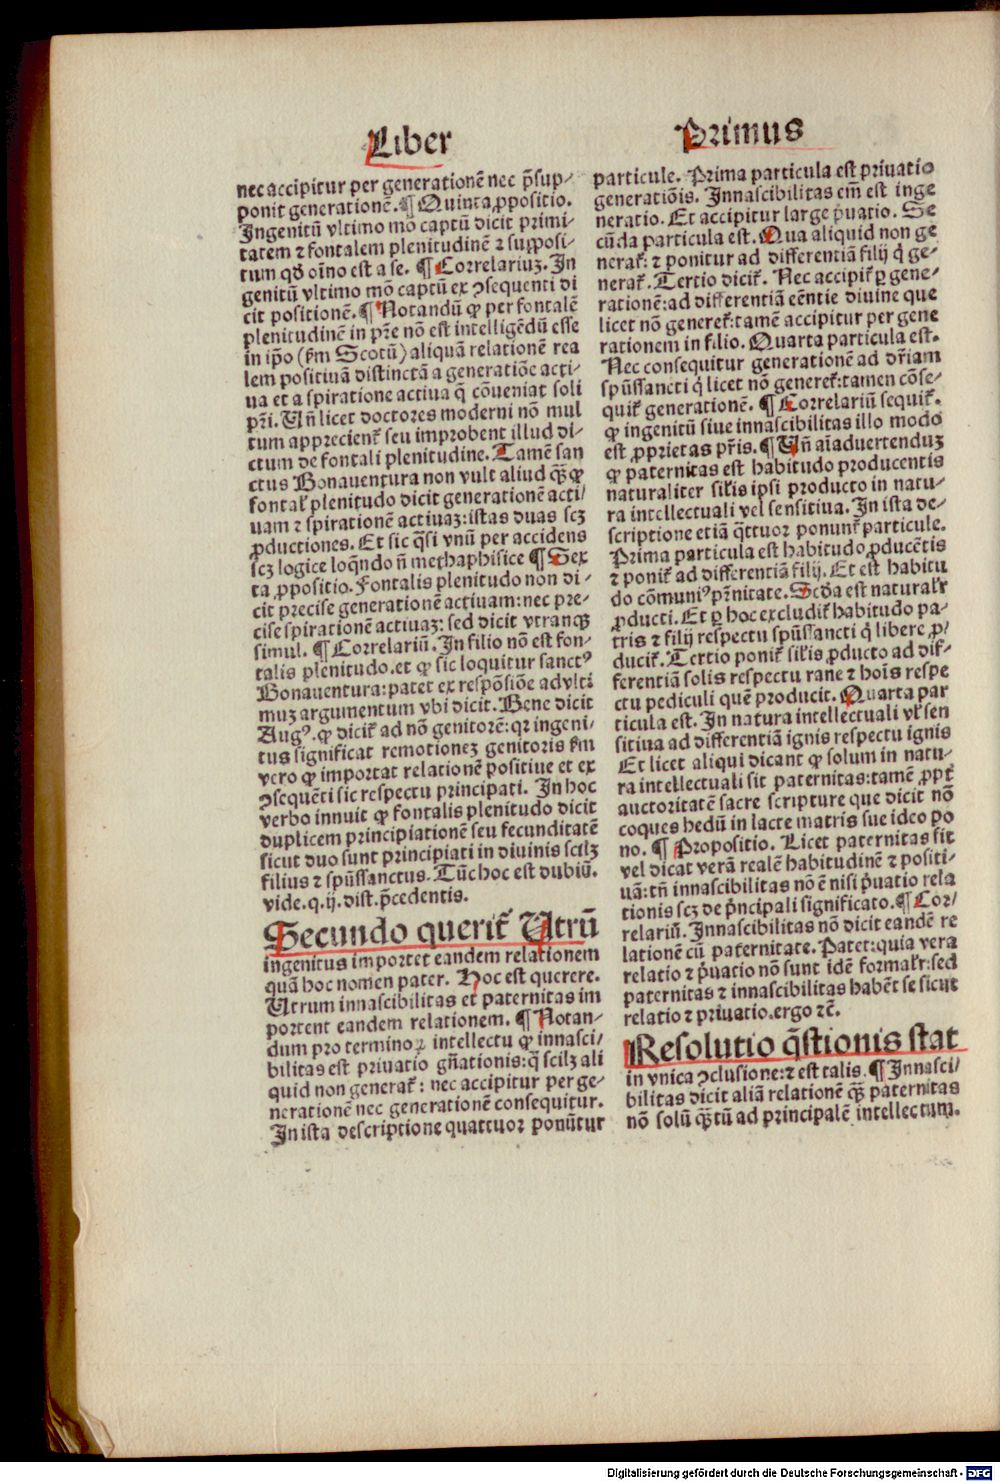 Liber
nec accipitur per generationē nec p̄sup-
ponit generationē. ¶ Quinta ꝓpositio.
Ingenitū vltimo mō captū dicit primi-
tatem ⁊ fontalem plenitudinē ⁊ supposi-
tum qđ oīno est a se. ¶ Correlariuꝫ. In
genitū vltimo mō captū ex ꝯsequenti di
cit positionē. ¶ Notandū ꝙ per fontalē
plenitudinē in p̄re nō est intelligēdū esse
in ip̄o (ẜm Scotū) aliquā relationē rea
lem positiuā distinctā a generatiōe acti-
ua et a spiratione actiua q̄ cōueniat soli
pr̄i. Vn̄ licet doctores moderni nō mul
tum apprecient̄ seu improbent illud di-
ctum de fontali plenitudine. Tamē san
ctus Bonauentura non vult aliud qꝫ̄ ꝙ
fontal̄ plenitudo dicit generationē acti-
uam ⁊ spirationē actiuaꝫ: istas duas scꝫ
ꝓductiones. Et sic q̄si vnū per accidens
scꝫ logice loq̄ndo n̄ methaphisice ¶ Sex
ta ꝓpositio. Fontalis plenitudo non di-
cit precise generationē actiuam: nec pre-
cise spirationē actiuaꝫ: sed dicit vtranqꝫ
simul. ¶ Correlariū. In filio nō est fon-
talis plenitudo. et ꝙ sic loquitur sanctꝰ
Bonauentura: patet ex respōsiōe ad vlti
muꝫ argumentum vbi dicit. Bene dicit
Augꝰ. ꝙ dicit̄ ad nō genitorē: qꝛ ingeni-
tus significat remotioneꝫ genitoris ẜm
vero ꝙ importat relationē positiue et ex
ꝯsequēti sic respectu principati. In hoc
verbo innuit ꝙ fontalis plenitudo dicit
duplicem principiationē seu fecunditatē
sicut duo sunt principiati in diuinis scilꝫ
filius ⁊ spūssanctus. Tūc hoc est dubiū.
vide. q. ij. dist. p̄cedentis.
Secundo querit̄ Vtrū
ingenitus importet eandem relationem
quā hoc nomen pater. Hoc est querere.
Vtrum innascibilitas et paternitas im
portent eandem relationem. ¶ Notan-
dum pro terminoꝝ intellectu ꝙ innasci-
bilitas est priuatio gn̄ationis: q̄ scilꝫ ali
quid non generat̄: nec accipitur per ge-
nerationē nec generationē consequitur.
In ista descriptione quattuor ponūtur
Primus
particule. Prima particula est priuatio
generatiōis. Innascibilitas em̄ est inge
neratio. Et accipitur large p̄uatio. Se
cūda particula est. Qua aliquid non ge
nerat̄: ⁊ ponitur ad differentiā filij q̄ ge-
nerat̄. Tertio dicit̄. Nec accipit̄ ꝑ gene-
rationē: ad differentiā eēntie diuine que
licet nō generet̄: tamē accipitur per gene
rationem in filio. Quarta particula est.
Nec consequitur generationē ad dr̄iam
spūssancti q̄ licet nō generet̄: tamen cōse-
quit̄ generationē. ¶ Correlariū sequit̄.
ꝙ ingenitū siue innascibilitas illo modo
est ꝓprietas pr̄is. ¶ Vn̄ aīaduertenduꝫ
ꝙ paternitas est habitudo producentis
naturaliter sil̄is ipsi producto in natu-
ra intellectuali vel sensitiua. In ista de-
scriptione etiā q̄ttuor ponunt̄ particule.
Prima particula est habitudo ꝓducētis
⁊ ponit̄ ad differentiā filij. Et est habitu
do cōmuniꝰ pr̄nitate. Scd̄a est natural̄r
ꝓducti. Et ꝑ hoc excludit̄ habitudo pa-
tris ⁊ filij respectu spūssancti q̄ libere ꝓ-
ducit̄. Tertio ponit̄ sil̄is ꝓducto ad dif-
ferentiā solis respectu rane ⁊ hoīs respe
ctu pediculi quē producit. Quarta par
ticula est. In natura intellectuali vl̄ sen
sitiua ad differentiā ignis respectu ignis
Et licet aliqui dicant ꝙ solum in natu-
ra intellectuali sit paternitas: tamē ꝓpt̄
auctoritatē sacre scripture que dicit nō
coques hedū in lacte matris sue ideo po
no. ¶ Propositio. Licet paternitas sit
vel dicat verā realē habitudinē ⁊ positi-
uā: tn̄ innascibilitas nō ē nisi p̄uatio rela
tionis scꝫ de p̄ncipali significato. ¶ Cor-
relariū. Innascibilitas nō dicit eandē re
lationē cū paternitate. Patet: quia vera
relatio ⁊ p̄uatio nō sunt idē formal̄r: sed
paternitas ⁊ innascibilitas habēt se sicut
relatio ⁊ priuatio. ergo ⁊c̄.
Resolutio q̄stionis stat
in vnica ꝯclusione: ⁊ est talis. ¶ Innasci-
bilitas dicit aliā relationē qꝫ̄ paternitas
nō solū qꝫ̄tū ad principalē intellectum.
Digitalisierung gefördert durch die Deutsche Forschungsgemeinschaft - DFG